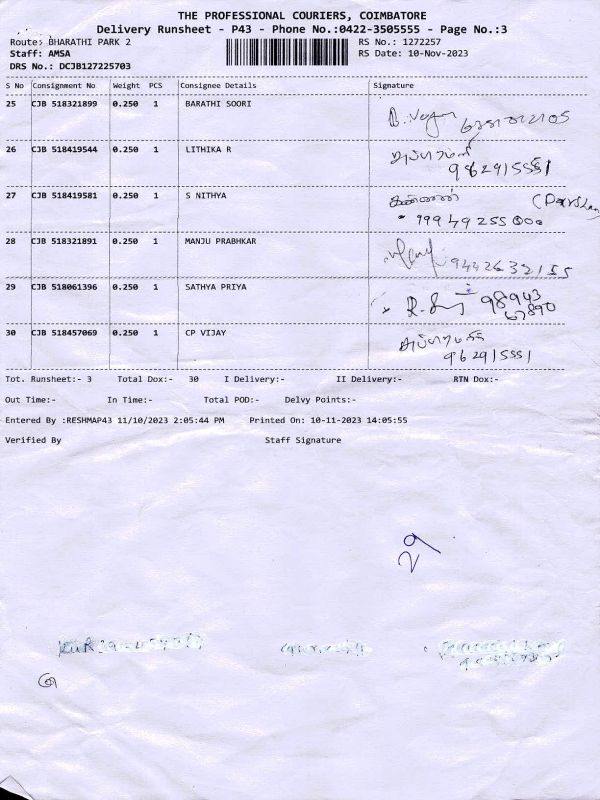 THE PROFESSIONAL COURIERS, COIMBATORE
Delivery Runsheet - P43 - Phone No.:0422-3505555 - Page No.:3
Route: BHARATHI PARK 2 RS No.: 1272257
Staff: AMSA RS Date: 10-Nov-2023
DRS No.: DCJB127225703
S No Consignment No Weight PCS Consignee Details Signature
25 CJB 518321899 0.250 1 BARATHI SOORI
26 CJB 518419544 0.250 1 LITHIKA R
962915551
27 CJB 518419581 0.250 1 S NITHYA
28 CJB 518321891 0.250 1 MANJU PRABHKAR 9442632155
29 CJB 518061396 0.250 1 SATHYA PRIYA 98943
67890
30 CJB 518457069 0.250 1 CP VIJAY
962915551
Tot. Runsheet:- 3 Total Dox:- 30 I Delivery:- II Delivery:- RTN Dox:-
Out Time:- In Time:- Total POD:- Delvy Points:-
Entered By :RESHMAP43 11/10/2023 2:05:44 PM Printed On: 10-11-2023 14:05:55
Verified By Staff Signature
29